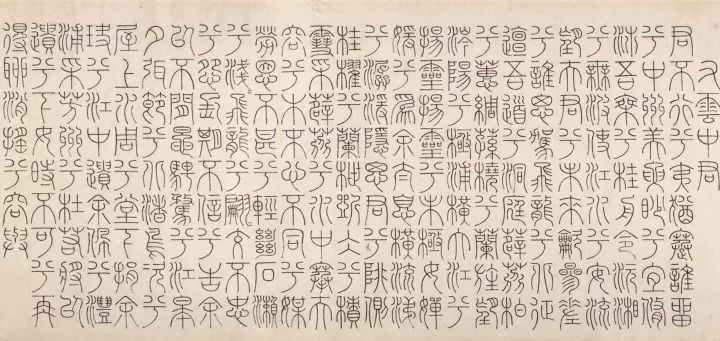 右雲中君
君不行兮夷猶蹇誰留
兮中洲美要眇兮宜修
沛吾乘兮桂舟令沅湘
兮無波使江水兮安流
望夫君兮未來吹參差
兮誰思駕飛龍兮北征
邅吾道兮洞庭薜荔柏
兮蕙綢蓀橈兮蘭旌望
涔陽兮極浦橫大江兮
揚靈揚靈兮未極女嬋
媛兮爲余太息橫流涕
兮潺湲隱思君兮陫側
桂櫂兮蘭枻斲冰兮積
雪采薜荔兮水中搴芙
容兮木末心不同兮媒
勞恩不甚兮輕絕石瀨
兮淺飛龍兮翩交不忠
兮怨長期不信兮告余
以不閒鼂騁騖兮江皋
夕弭節兮北渚鳥次兮
屋上水周兮堂下捐余
玦兮江中遺余佩兮澧
浦采芳洲兮杜若將以
遺兮下女時不可兮再
得聊逍遙兮容與